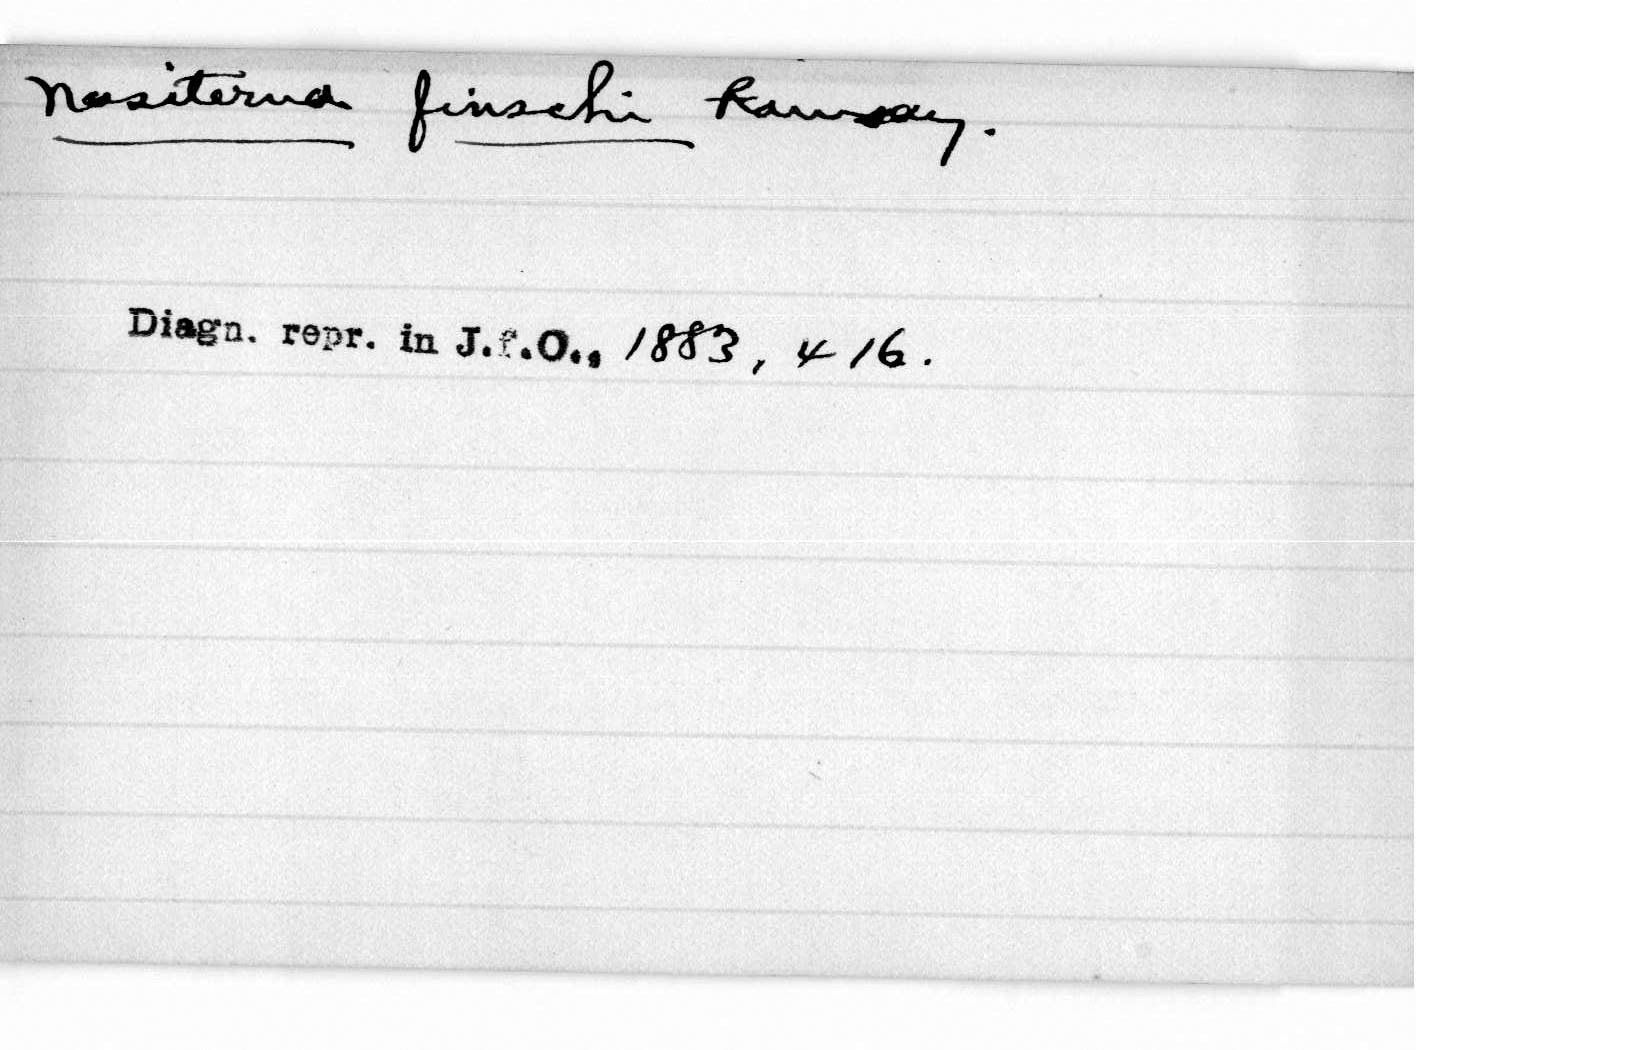 Nasiterna finschi Ramsay.
Diagn. repr. in J.f.O., 1883, 416.